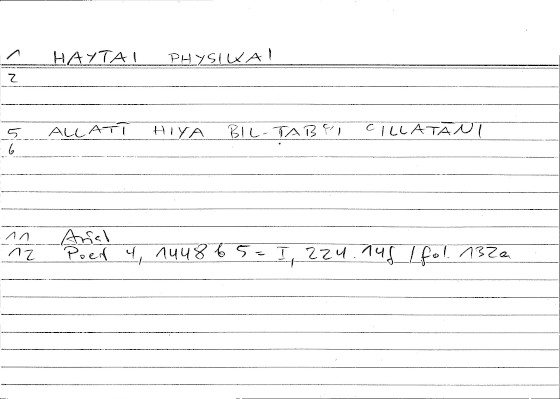 1 HAYTAI PHYSIKAI
2
5 ALLATĪ HIYA BIL-ṬABʿI ʿILLATĀNI
6
11 Arist
12 Poet 4, 1448 b 5 = I, 224.14f / fol. 132a